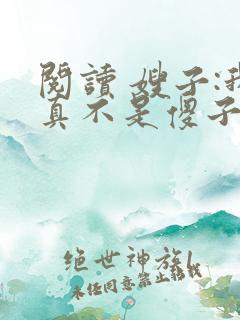 閱讀 嫂子:我
真不是傻子
绝世神族l
未经同意禁止转载